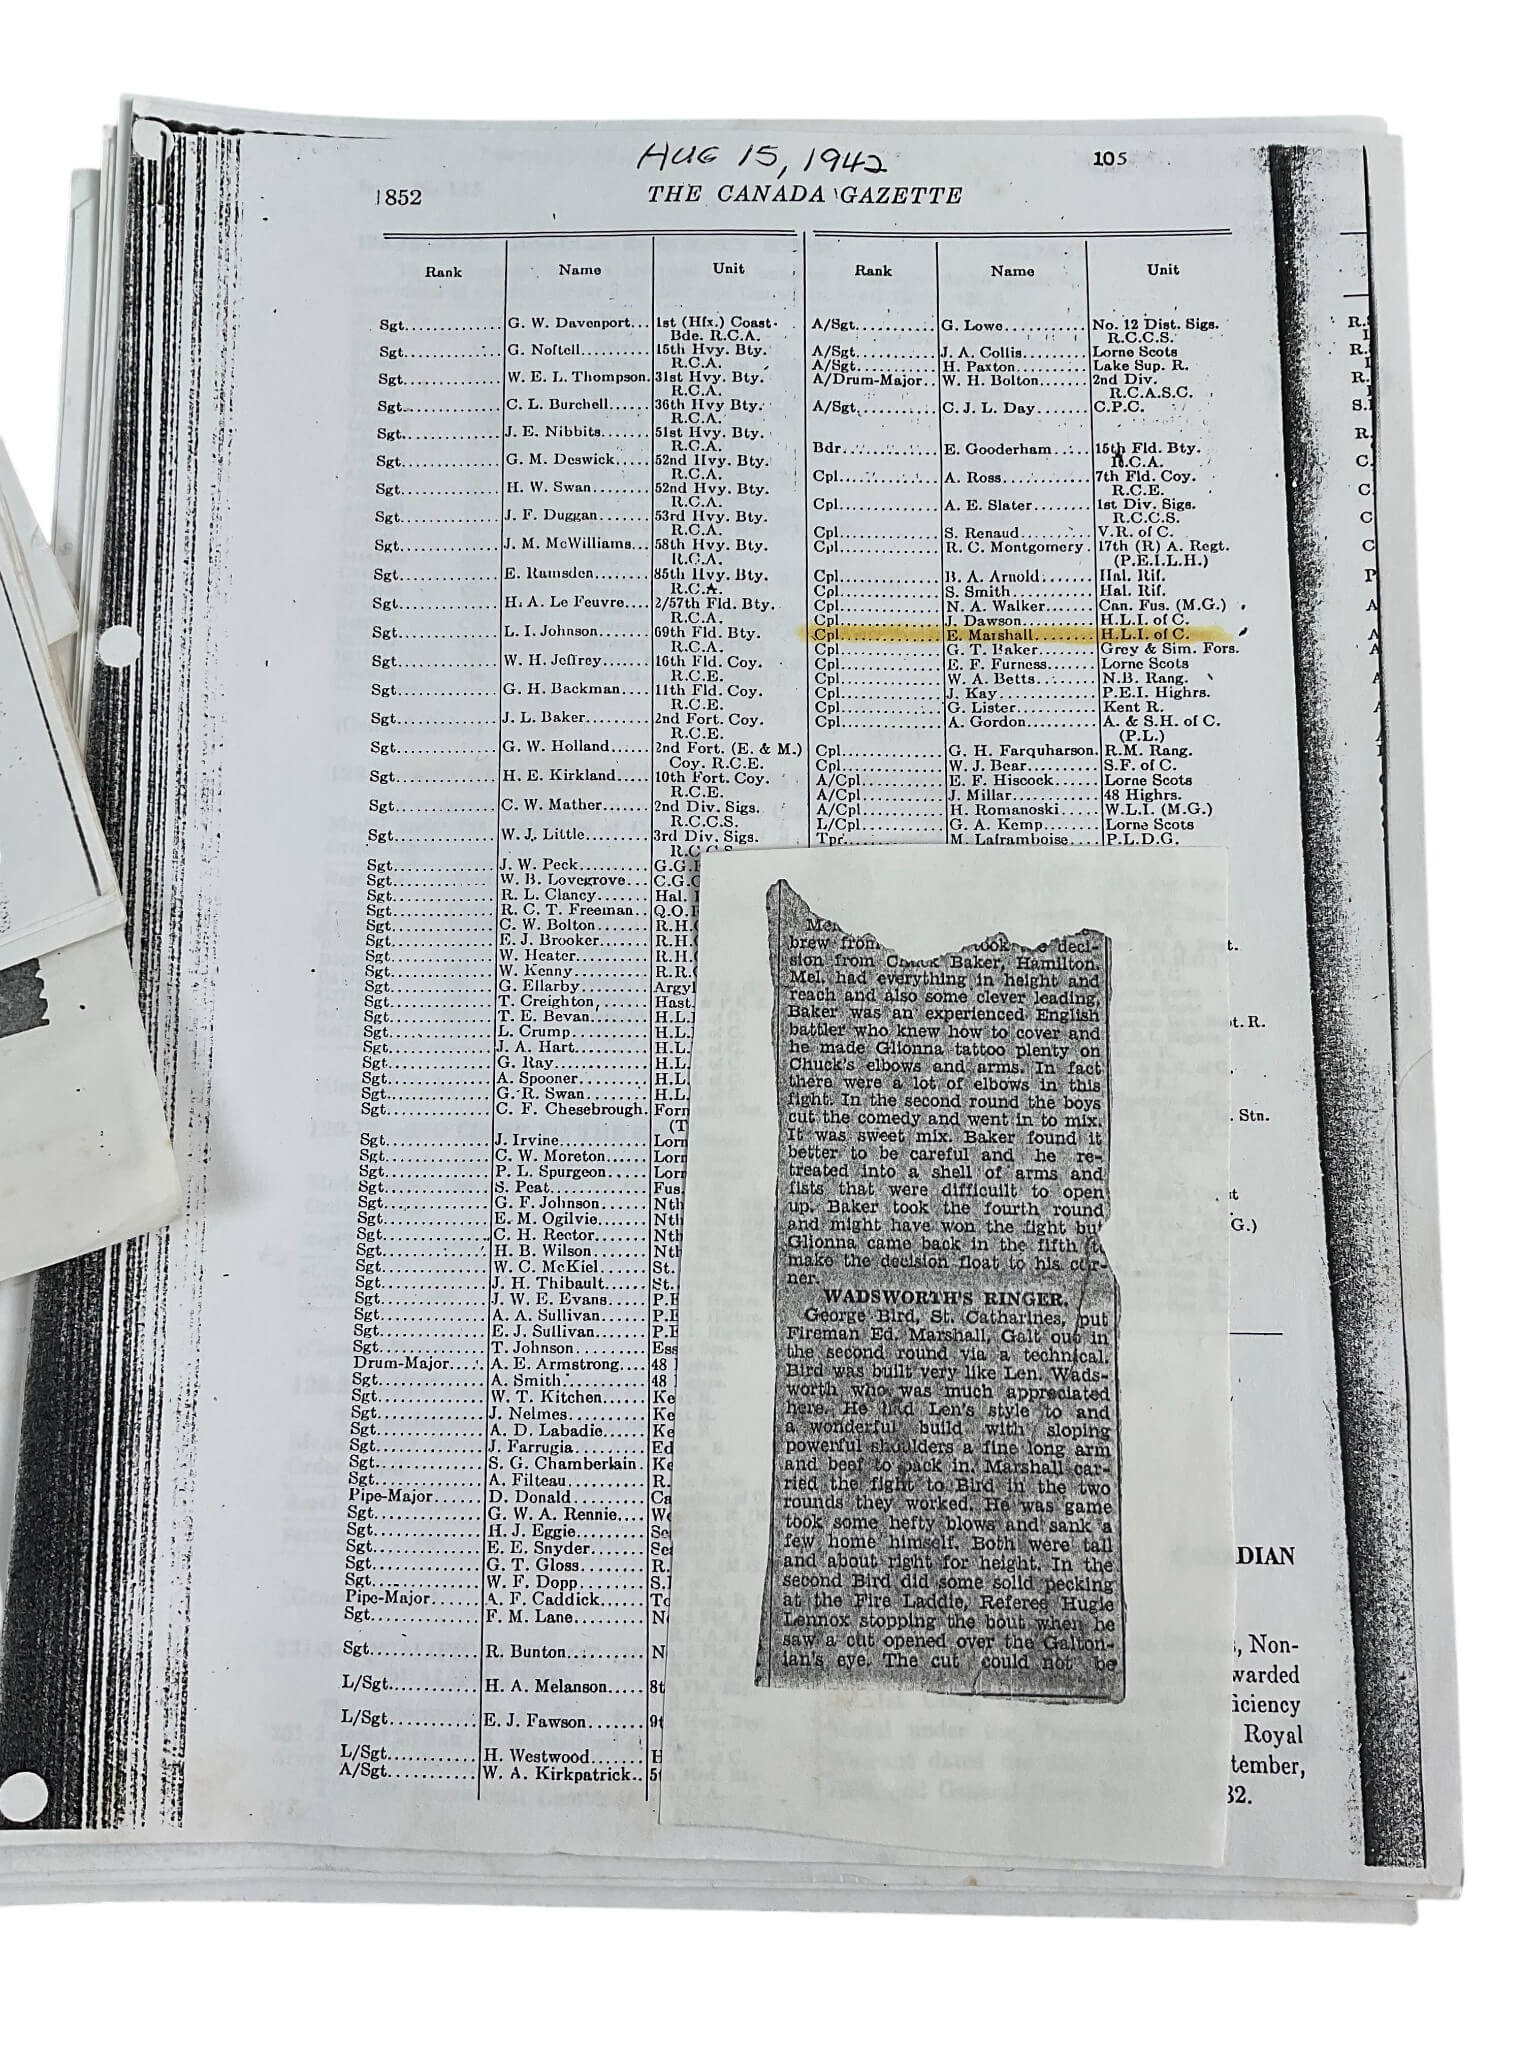 AUG 15, 1942
105
1852
THE CANADA GAZETTE
Rank Name Unit
Sgt.............. G. W. Davenport... 1st (Hfx.) Coast
Bde. R.C.A.
Sgt.............. G. Noftell.......... 15th Hvy. Bty.
R.C.A.
Sgt.............. W. E. L. Thompson. 31st Hvy. Bty.
R.C.A.
Sgt.............. C. L. Burchell...... 36th Hvy Bty.
R.C.A.
Sgt.............. J. E. Nibbits....... 51st Hvy. Bty.
R.C.A.
Sgt.............. G. M. Deswick..... 52nd Hvy. Bty.
R.C.A.
Sgt.............. H. W. Swan........ 52nd Hvy. Bty.
R.C.A.
Sgt.............. J. F. Duggan....... 53rd Hvy. Bty.
R.C.A.
Sgt.............. J. M. McWilliams... 58th Hvy. Bty.
R.C.A.
Sgt.............. E. Ramsden........ 85th Hvy. Bty.
R.C.A.
Sgt.............. H. A. Le Feuvre.... 2/57th Fld. Bty.
R.C.A.
Sgt.............. L. I. Johnson....... 69th Fld. Bty.
R.C.A.
Sgt.............. W. H. Jeffrey...... 16th Fld. Coy.
R.C.E.
Sgt.............. G. H. Backman.... 11th Fld. Coy.
R.C.E.
Sgt.............. J. L. Baker......... 2nd Fort. Coy.
R.C.E.
Sgt.............. G. W. Holland..... 2nd Fort. (E. & M.)
Coy. R.C.E.
Sgt.............. H. E. Kirkland..... 10th Fort. Coy.
R.C.E.
Sgt.............. C. W. Mather....... 2nd Div. Sigs.
R.C.C.S.
Sgt.............. W. J. Little......... 3rd Div. Sigs.
R.C.C.S.
Sgt.............. J. W. Peck.......... G.G.
Sgt.............. W. B. Lovegrove... C.G.
Sgt.............. R. L. Clancy....... Hal.
Sgt.............. R. C. T. Freeman.. Q.O.
Sgt.............. C. W. Bolton....... R.H.
Sgt.............. E. J. Brooker....... R.H.
Sgt.............. W. Heater.......... R.H.
Sgt.............. W. Kenny.......... R.R.
Sgt.............. G. Ellarby.......... Argyl
Sgt.............. T. Creighton........ Hast.
Sgt.............. T. E. Bevan........ H.L.
Sgt.............. L. Crump.......... H.L.
Sgt.............. J. A. Hart.......... H.L.
Sgt.............. G. Ray............. H.L.
Sgt.............. A. Spooner......... H.L.
Sgt.............. G. R. Swan........ H.L.
Sgt.............. C. F. Chesebrough. Forn
(T
Sgt.............. J. Irvine............ Lorn
Sgt.............. C. W. Moreton..... Lorn
Sgt.............. P. L. Spurgeon..... Lorn
Sgt.............. S. Peat............. Fus.
Sgt.............. G. F. Johnson...... Nth
Sgt.............. E. M. Ogilvie....... Nth
Sgt.............. C. H. Rector....... Nth
Sgt.............. H. B. Wilson....... Nth
Sgt.............. W. C. McKiel...... St.
Sgt.............. J. H. Thibault...... St.
Sgt.............. J. W. E. Evans..... P.E
Sgt.............. A. A. Sullivan...... P.E
Sgt.............. E. J. Sullivan....... P.E
Sgt.............. T. Johnson......... Ess
Drum-Major..... A. E. Armstrong.... 48
Sgt.............. A. Smith........... 48
Sgt.............. W. T. Kitchen...... Ke
Sgt.............. J. Nelmes.......... Ke
Sgt.............. A. D. Labadie...... Ke
Sgt.............. J. Farrugia......... Ed
Sgt.............. S. G. Chamberlain. Ke
Sgt.............. A. Filteau.......... R.
Pipe-Major...... D. Donald......... Ca
Sgt.............. G. W. A. Rennie.... We
Sgt.............. H. J. Eggie......... Se
Sgt.............. E. E. Snyder....... Se
Sgt.............. G. T. Gloss........ R.
Sgt.............. W. F. Dopp........ S.
Pipe-Major...... A. F. Caddick...... To
Sgt.............. F. M. Lane......... N
Sgt.............. R. Bunton.......... N
L/Sgt............ H. A. Melanson..... 8t
L/Sgt............ E. J. Fawson....... 9t
L/Sgt............ H. Westwood...... H
A/Sgt........... W. A. Kirkpatrick.. 5t
Rank Name Unit
A/Sgt........... G. Lowe........... No. 12 Dist. Sigs.
R.C.C.S.
A/Sgt........... J. A. Collis......... Lorne Scots
A/Sgt........... H. Paxton.......... Lake Sup. R.
A/Drum-Major.. W. H. Bolton...... 2nd Div.
R.C.A.S.C.
A/Sgt........... C. J. L. Day....... C.P.C.
Bdr.............. E. Gooderham..... 15th Fld. Bty.
R.C.A.
Cpl.............. A. Ross............ 7th Fld. Coy.
R.C.E.
Cpl.............. A. E. Slater........ 1st Div. Sigs.
R.C.C.S.
Cpl.............. S. Renaud......... V.R. of C.
Cpl.............. R. C. Montgomery. 17th (R) A. Regt.
(P.E.I.L.H.)
Cpl.............. B. A. Arnold....... Hal. Rif.
Cpl.............. S. Smith........... Hal. Rif.
Cpl.............. N. A. Walker...... Can. Fus. (M.G.)
Cpl.............. J. Dawson......... H.L.I. of C.
Cpl.............. E. Marshall........ H.L.I. of C.
Cpl.............. G. T. Baker........ Grey & Sim. Fors.
Cpl.............. E. F. Furness....... Lorne Scots
Cpl.............. W. A. Betts........ N.B. Rang.
Cpl.............. J. Kay............. P.E.I. Highrs.
Cpl.............. G. Lister........... Kent R.
Cpl.............. A. Gordon......... A. & S.H. of C.
(P.L.)
Cpl.............. G. H. Farquharson. R.M. Rang.
Cpl.............. W. J. Bear......... S.F. of C.
A/Cpl........... E. F. Hiscock...... Lorne Scots
A/Cpl........... J. Millar........... 48 Highrs.
A/Cpl........... H. Romanoski..... W.L.I. (M.G.)
L/Cpl............ G. A. Kemp........ Lorne Scots
Tpr.............. M. Laframboise.... P.L.D.G.
brew from took deci-
sion from Chuck Baker, Hamilton.
Mel. had everything in height and
reach and also some clever leading,
Baker was an experienced English
battler who knew how to cover and
he made Glionna tattoo plenty on
Chuck's elbows and arms. In fact
there were a lot of elbows in this
fight. In the second round the boys
cut the comedy and went in to mix.
It was sweet mix. Baker found it
better to be careful and he re-
treated into a shell of arms and
fists that were difficuilt to open
up. Baker took the fourth round
and might have won the fight but
Glionna came back in the fifth to
make the decision float to his cor-
ner.
WADSWORTH'S RINGER.
George Bird, St. Catharines, put
Fireman Ed. Marshall, Galt out in
the second round via a technical.
Bird was built very like Len. Wads-
worth who was much appreciated
here. He had Len's style to and
a wonderful build with sloping
powerful shoulders a fine long arm
and beef to pack in. Marshall car-
ried the fight to Bird in the two
rounds they worked. He was game
took some hefty blows and sank a
few home himself. Both were tall
and about right for height. In the
second Bird did some solid pecking
at the Fire Laddie, Referee Hugie
Lennox stopping the bout when he
saw a cut opened over the Galton-
ian's eye. The cut could not be
t. R.
. Stn.
G.)
DIAN
, Non-
warded
iciency
Royal
tember,
32.